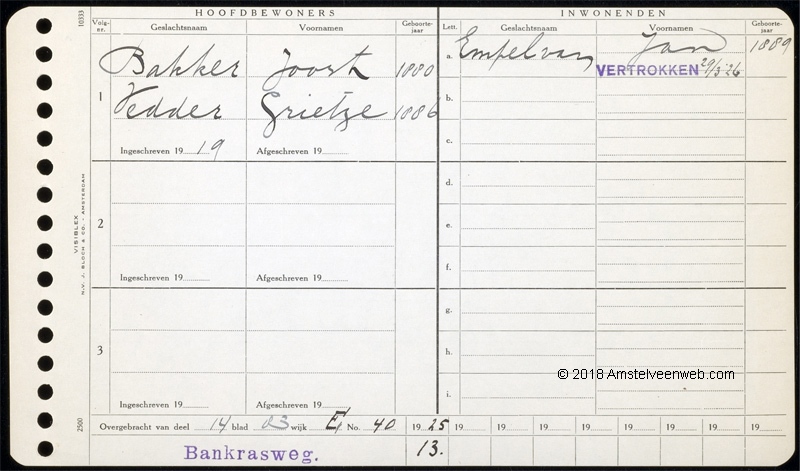 HOOFDBEWONERS INWONENDEN
Volg-nr. Geslachtsnaam Voornamen Geboorte-jaar Lett. Geslachtsnaam Voornamen Geboorte-jaar
1 Bakker Joost 1880 a. Empel van Jan 1889
VERTROKKEN 29/3-26
Vedder Grietje 1886 b.
Ingeschreven 19 19 Afgeschreven 19 c.
d.
2 e.
Ingeschreven 19 Afgeschreven 19 f.
g.
3 h.
© 2018 Amstelveenweb.com
Ingeschreven 19 Afgeschreven 19 i.
Overgebracht van deel 14 blad 83 wijk E, No. 40 19 25 19 19 19 19 19 19 19 19
Bankrasweg. 13.
10333
VISIBLEX
N.V. J. BLOCH & CO. - AMSTERDAM
2500